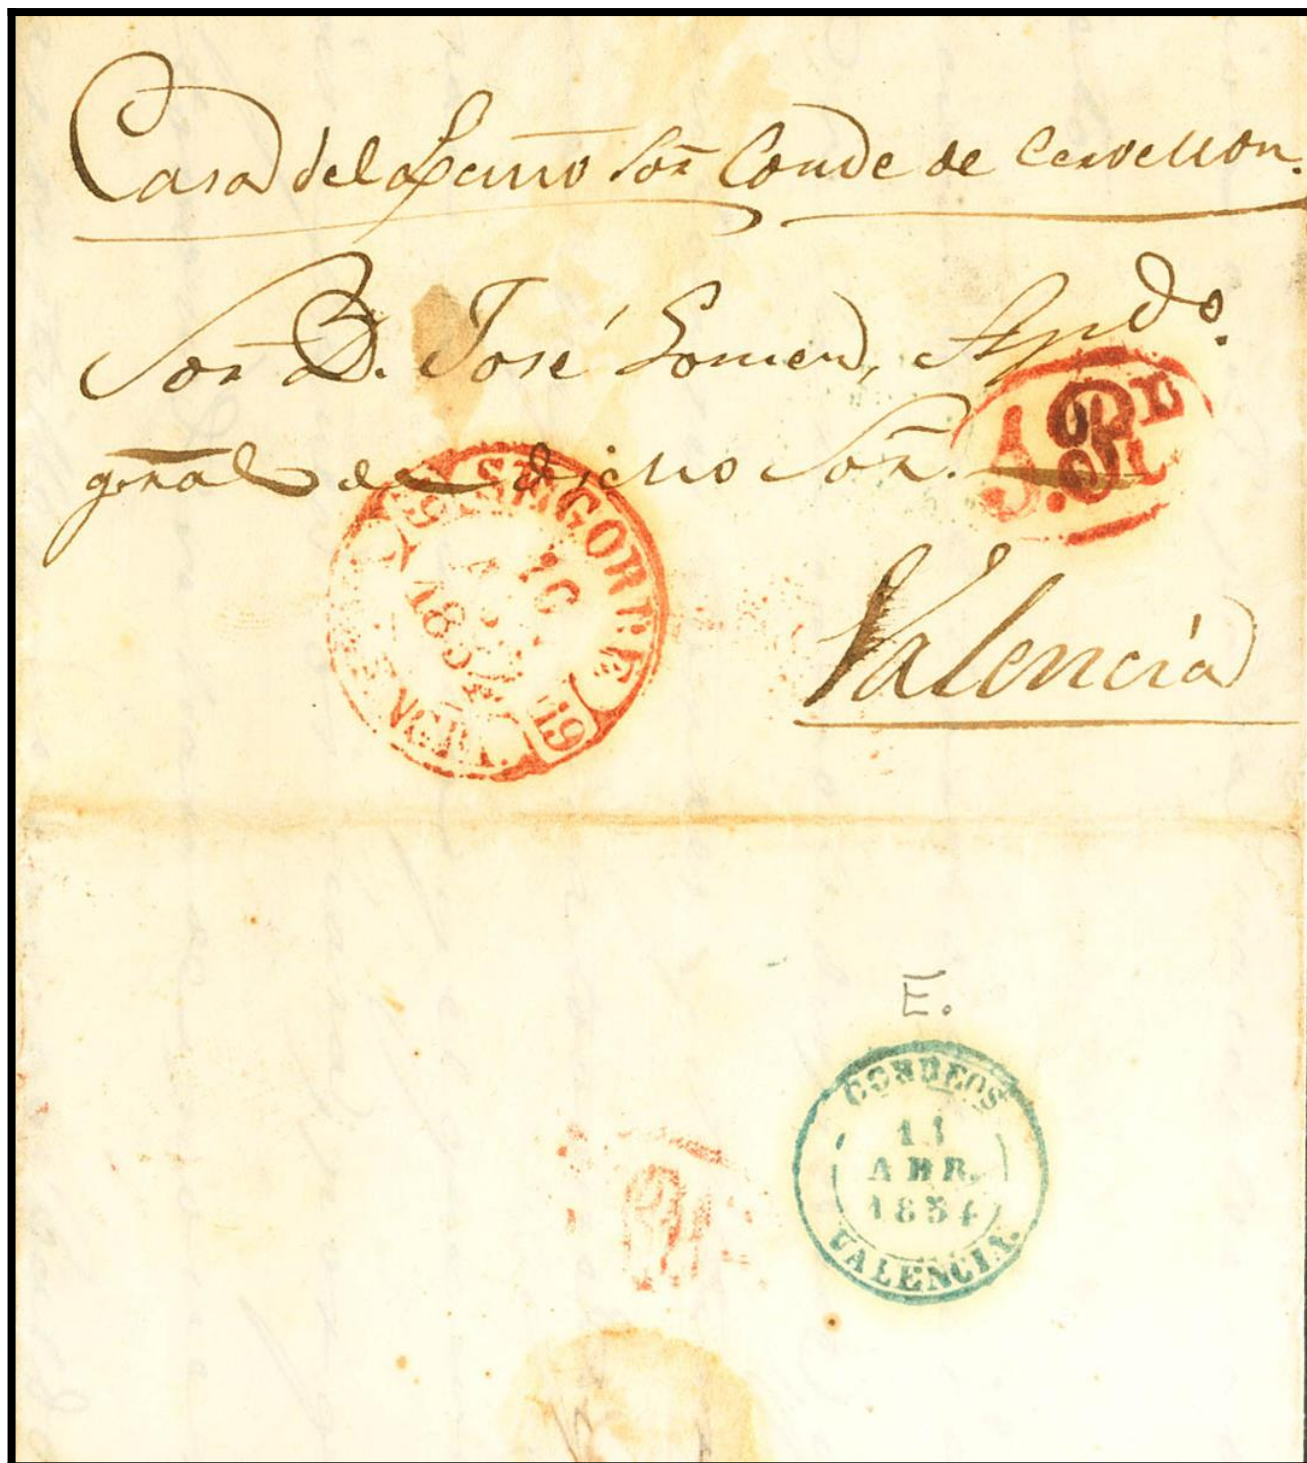 Casa del Excmo Sor Conde de Cervellon.
Sor D. José Gomez, Apdo.
gral de dicho Sor.
Valencia
SEGORBE
19
E.
CORREOS
11
ABR.
1854
VALENCIA.